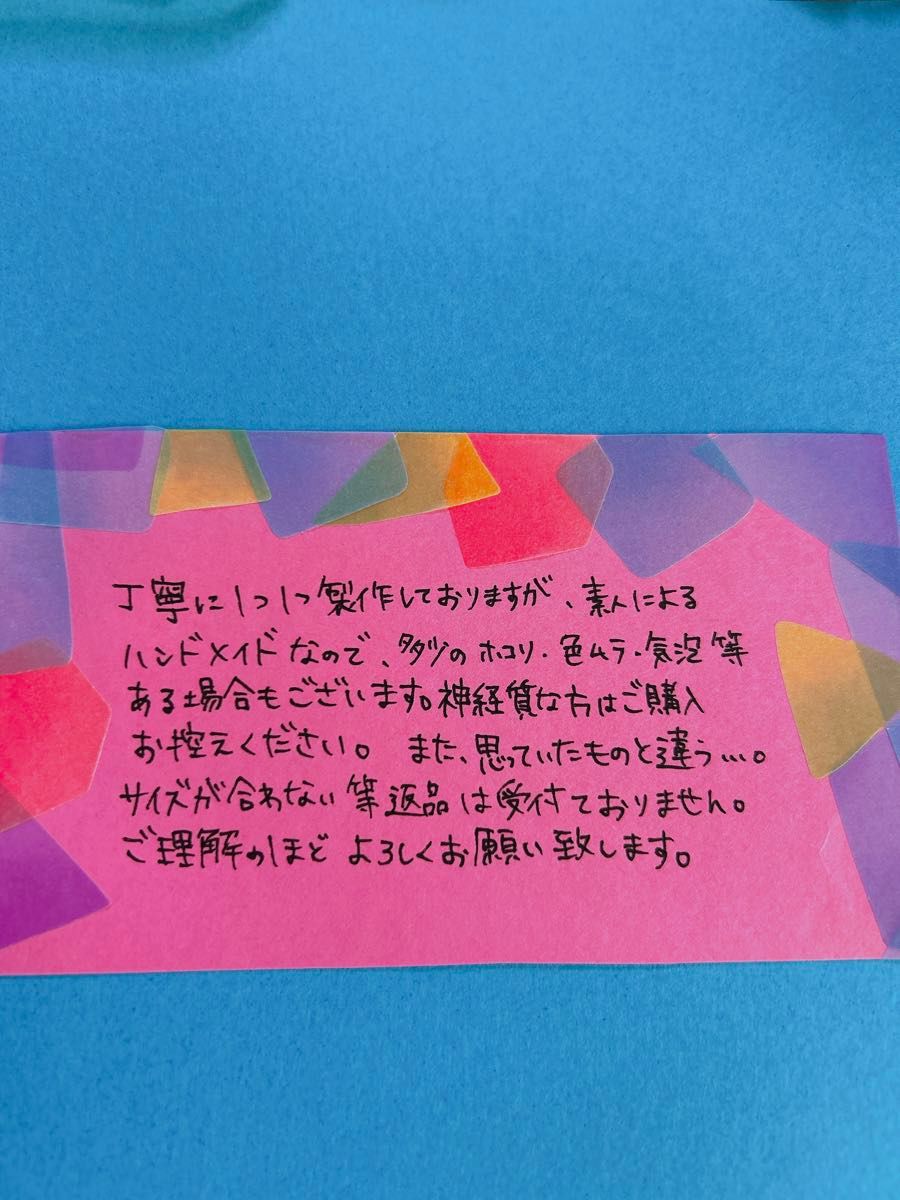 丁寧に1つ1つ製作しておりますが、素人による
ハンドメイドなので、多少のホコリ・色ムラ・気泡等
ある場合もございます。神経質な方はご購入
お控えください。 また、思っていたものと違う…。
サイズが合わない等返品は受付ておりません。
ご理解のほどよろしくお願い致します。